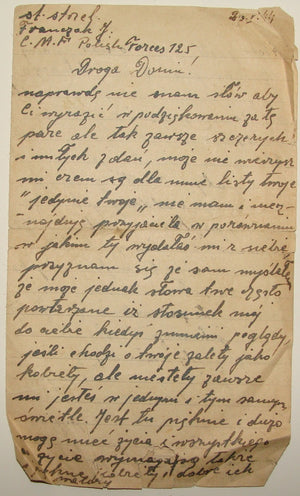 st. strzel.
Franczak J.
C.M.F. Polish Forces 125
Droga Doniu!
naprawdę nie mam słów aby
Ci wyrazić w podziękowaniu za tę
parę ale tak zawsze szczerych
i miłych zdań, może nie wierzysz
mi czem są dla mnie listy twoje
"jedynie twoje" nie mam i niez-
najduję przyjaciela w porównaniu
w jakim ty wydałaś mi z siebie,
przyznam się że sam myślałem
że moje jednak słowa twe często
powtarzane iż stosunek mój
do ciebie kiedyś zmieni poglądy,
jeśli chodzi o twoje zalety jako
kobiety, ale niestety zawsze
mi jesteś w jednym i tym samym
świetle. Jest tu pięknie i dużo
mogę mieć życia i wszystkiego
życia wymagają także
i dość ich